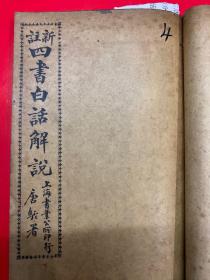 新註
四書白話解說
上海書業公所印行
唐駝署
4